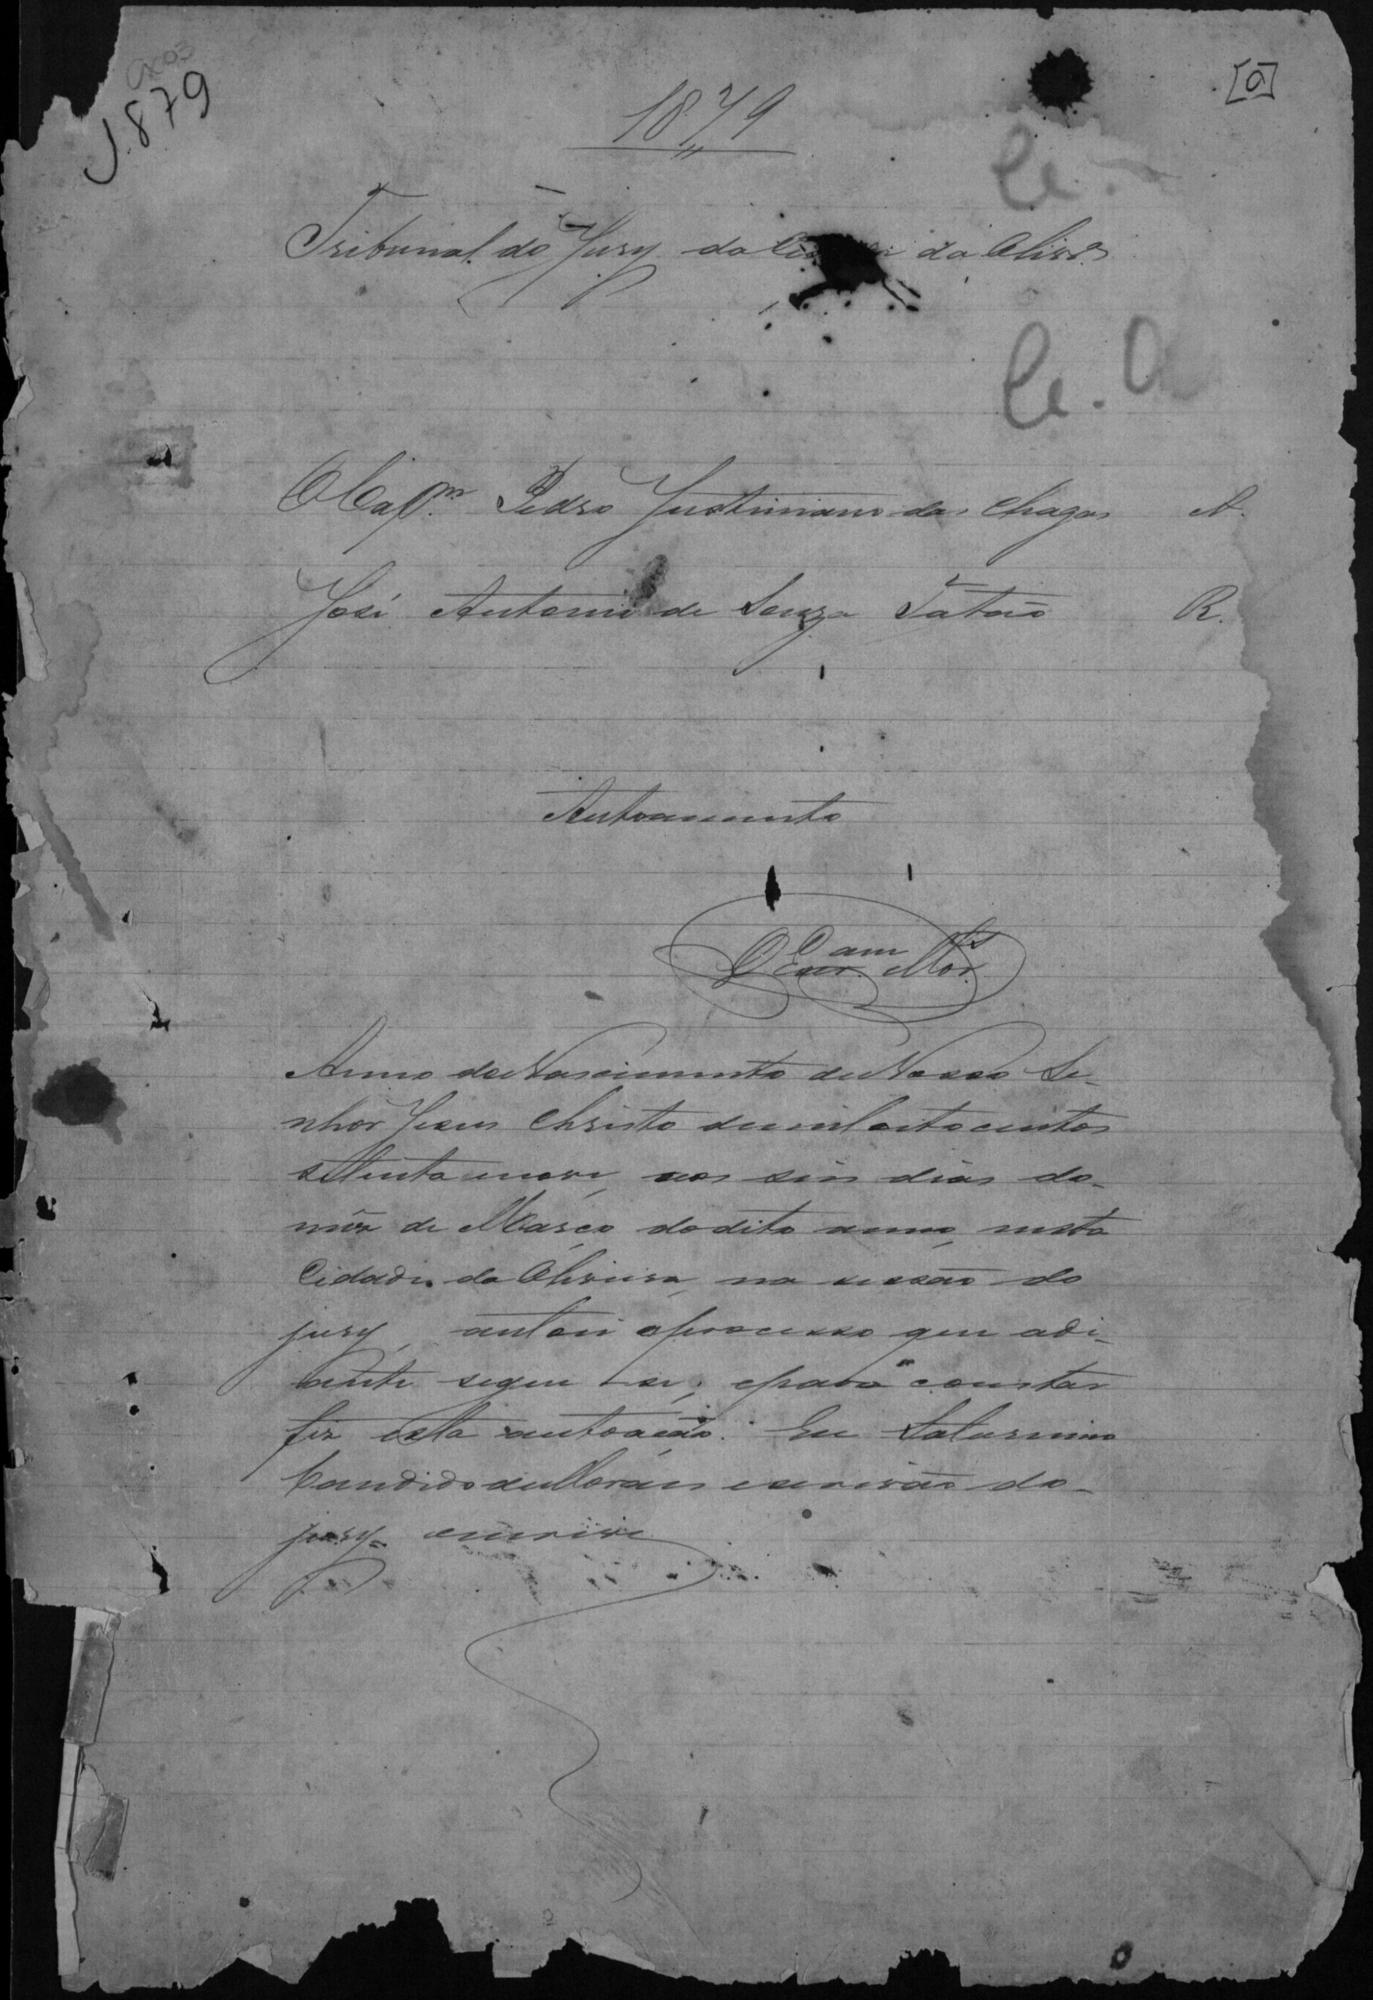 cx 03
1879
[a]
1879
Tribunal do Jury da da Olivrª
C. A
O Capm. Pedro Justiniano das Chagas A.
José Antonio de Souza Tatão R.
Autoamento
O Escr. Moras
Anno do Nascimento de Nosso Se-
nhor Jesus Christo de mil oitocentos
setenta nove, aos seis dias do
mez de Março do dito anno, nesta
Cidade da Oliveira, na sessão do
jury, autoei o processo que adi-
ante segue se, e para constar
fiz esta autoação. Eu Saturnino
Candido de Moraes escrivão do
jury escrevi